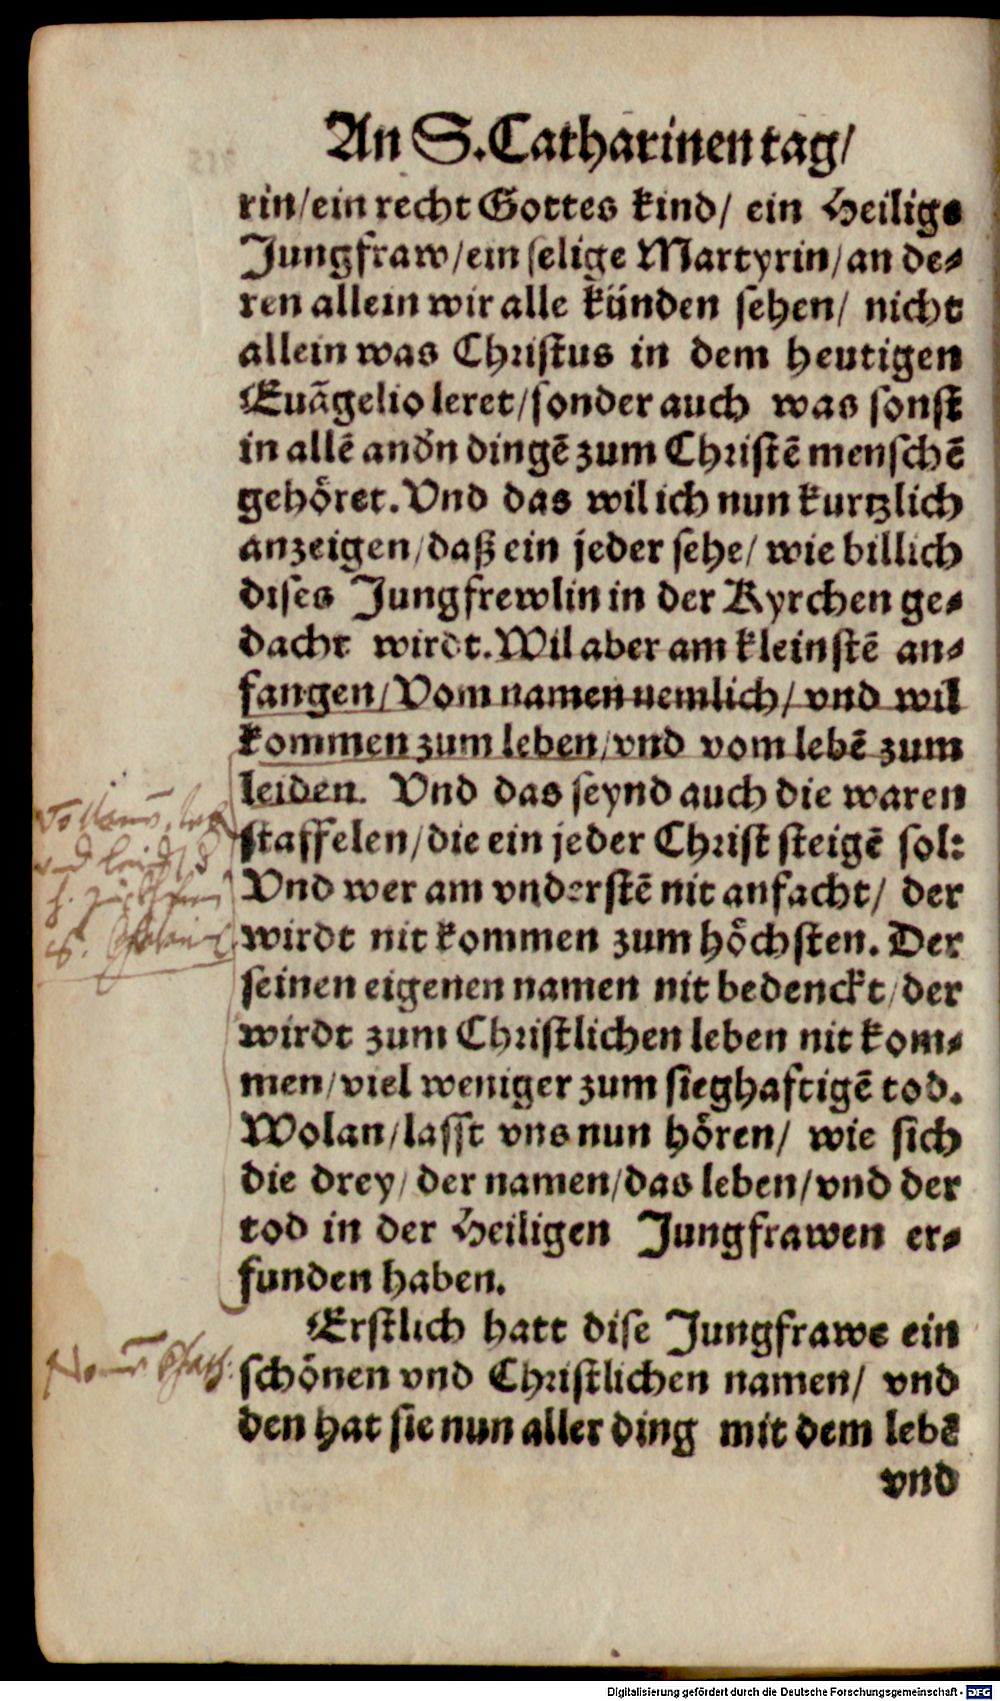 An S. Catharinen tag/
rin/ein recht Gottes kind/ ein Heilige
Jungfraw/ein selige Martyrin/an de⸗
ren allein wir alle künden sehen/ nicht
allein was Christus in dem heutigen
Euãgelio leret/sonder auch was sonst
in allẽ andn̄ dingẽ zum Christẽ menschẽ
gehöret. Vnd das wil ich nun kurtzlich
anzeigen/daß ein jeder sehe/ wie billich
dises Jungfrewlin in der Kyrchen ge⸗
dacht wirdt. Wil aber am kleinstẽ an⸗
fangen/Vom namen nemlich/ vnd wil
kommen zum leben/vnd vom lebẽ zum
leiden. Vnd das seynd auch die waren
staffelen/die ein jeder Christ steigẽ sol:
Vnd wer am vnderstẽ nit anfacht/ der
wirdt nit kommen zum höchsten. Der
seinen eigenen namen nit bedenckt/der
wirdt zum Christlichen leben nit kom⸗
men/viel weniger zum sieghaftigẽ tod.
Wolan/lasst vns nun hören/ wie sich
die drey/ der namen/das leben/vnd der
tod in der Heiligen Jungfrawen er⸗
funden haben.
Erstlich hatt dise Jungfrawe ein
schönen vnd Christlichen namen/ vnd
den hat sie nun aller ding mit dem lebẽ
vnd
Digitalisierung gefördert durch die Deutsche Forschungsgemeinschaft - DFG